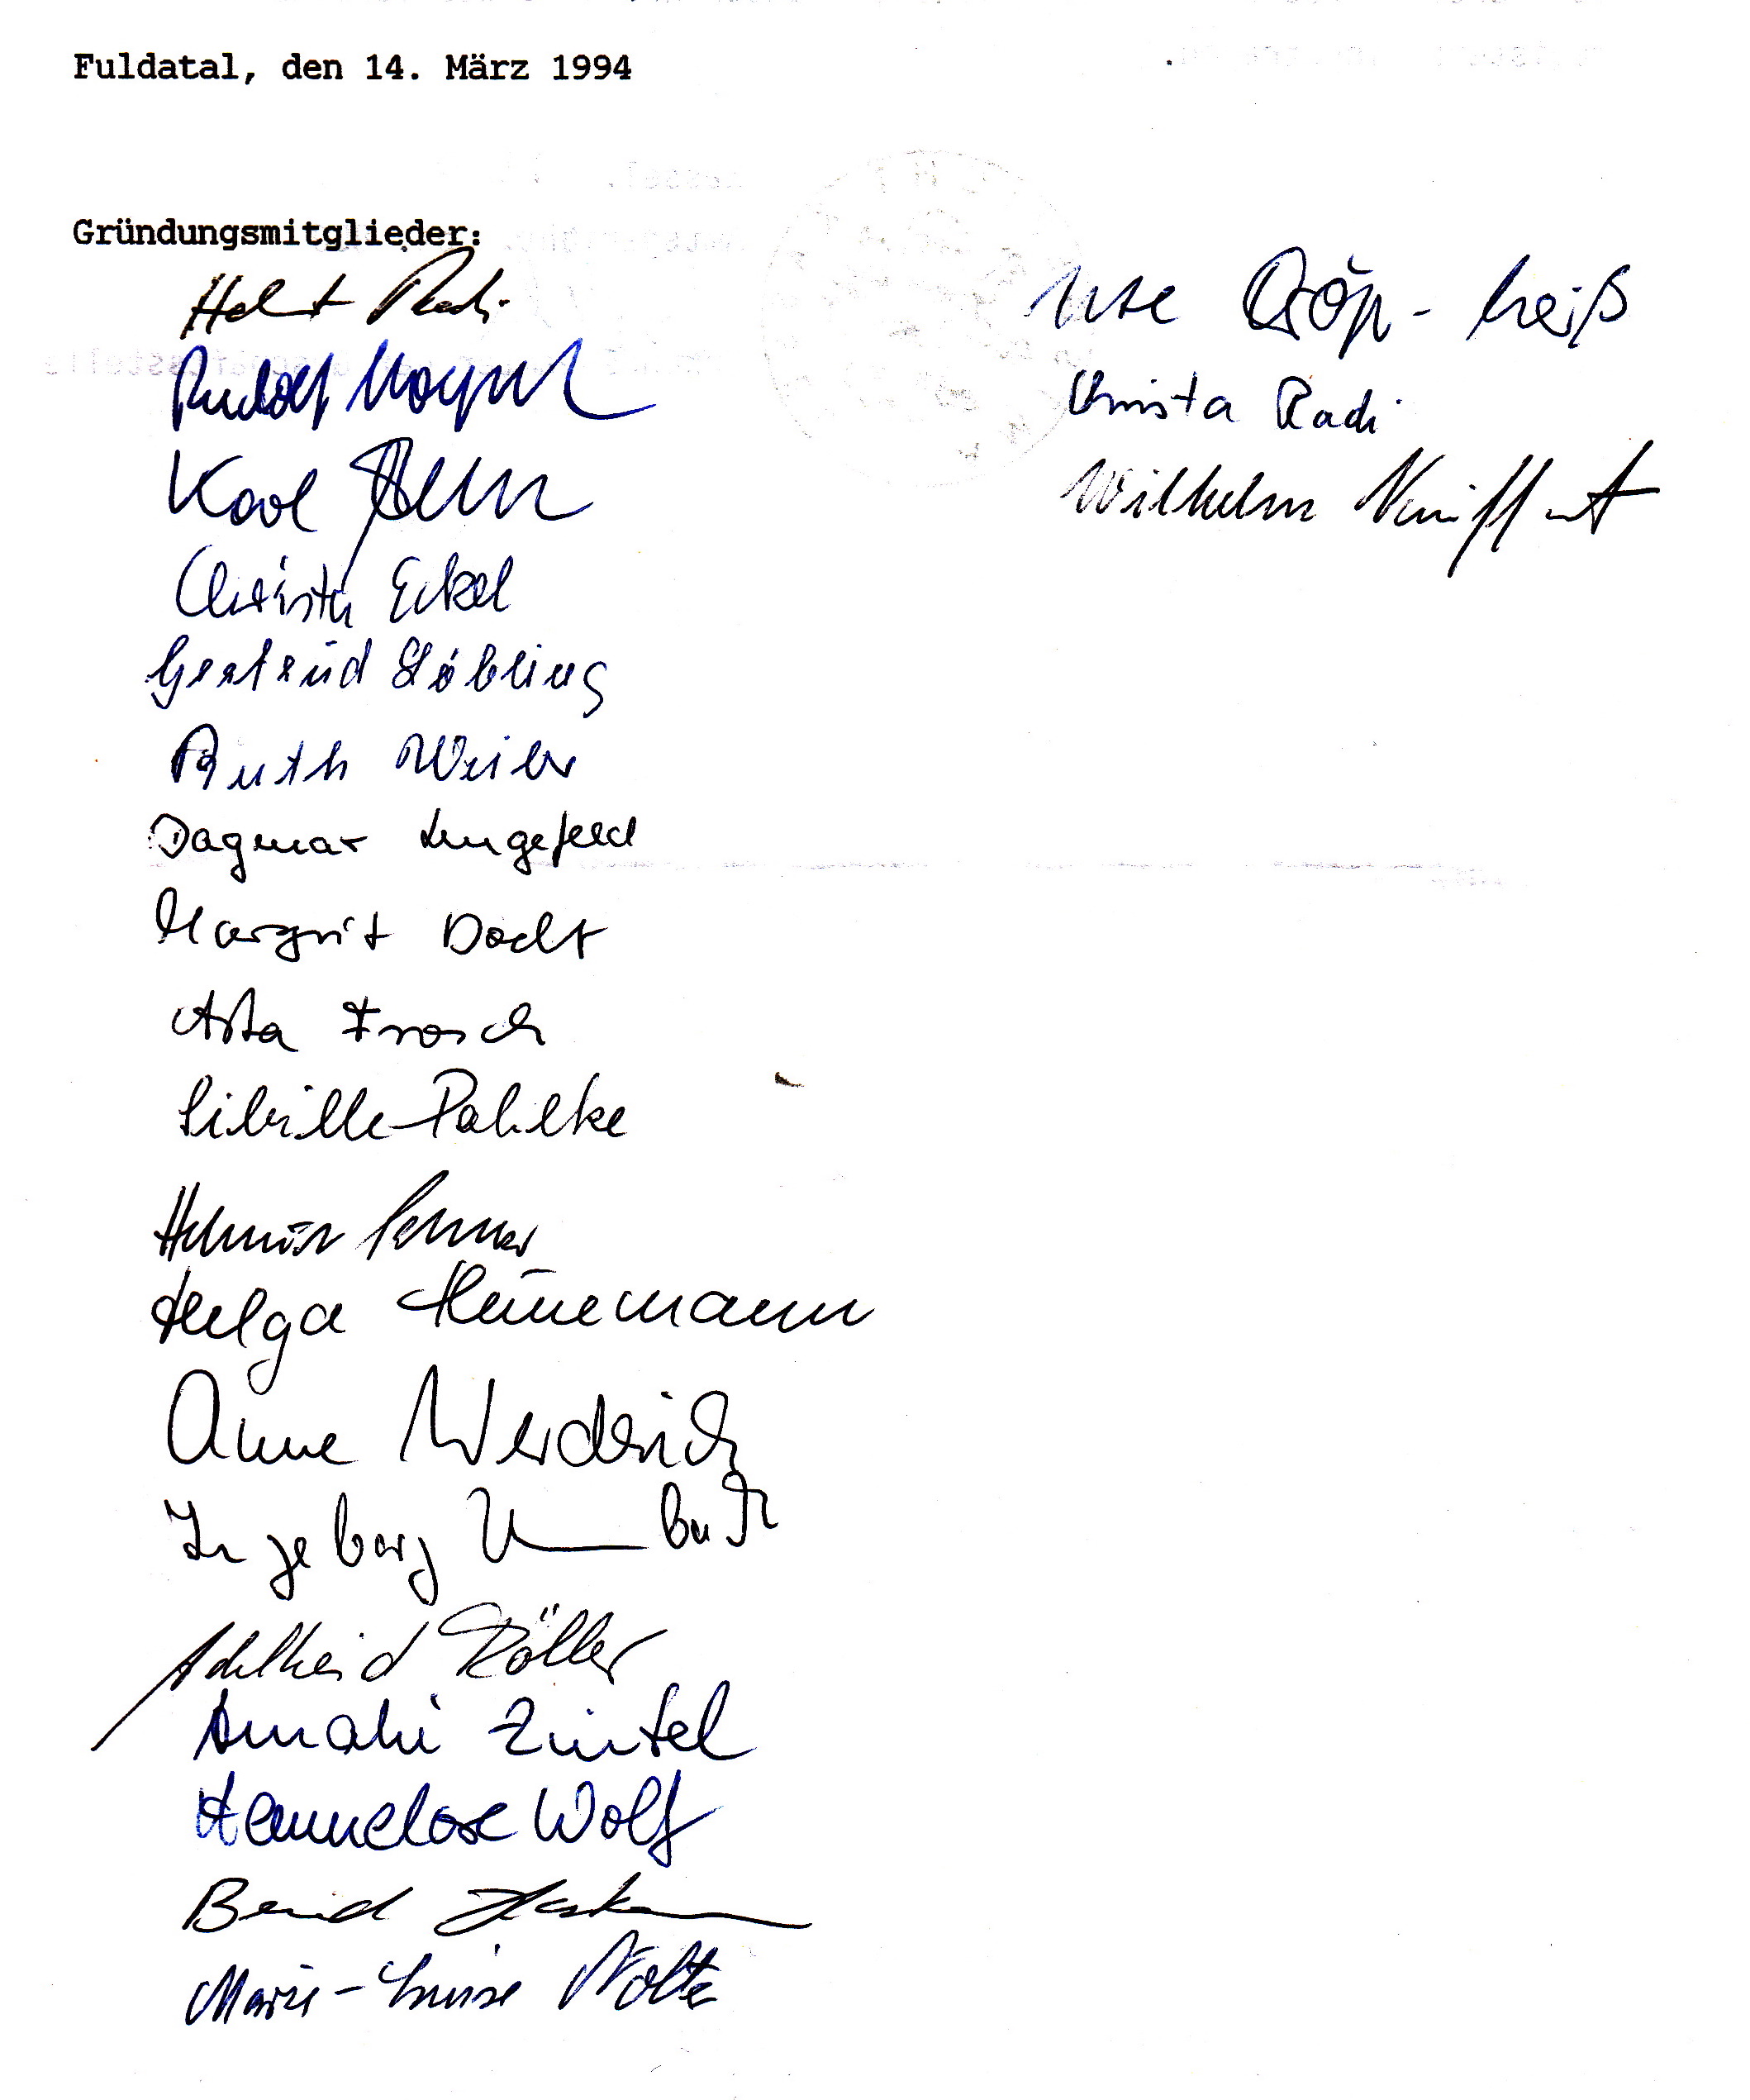 Fuldatal, den 14. März 1994
Gründungsmitglieder:
Helmut Radi
Rudolf
Karl
Christa Eckel
Gertrud Stöbling
Ruth Weiler
Dagmar Lengefeld
Margrit Docht
Asta Frosch
Sibille Pahlke
Helmut
Helga Heinemann
Anne Werderich
Ingeborg Umbach
Adelheid Töller
Amali Zintel
Hannelore Wolf
Bernd
Marie-Luise Nolte
Ilse Kröp-Weiß
Christa Radi
Wilhelm Kniffert